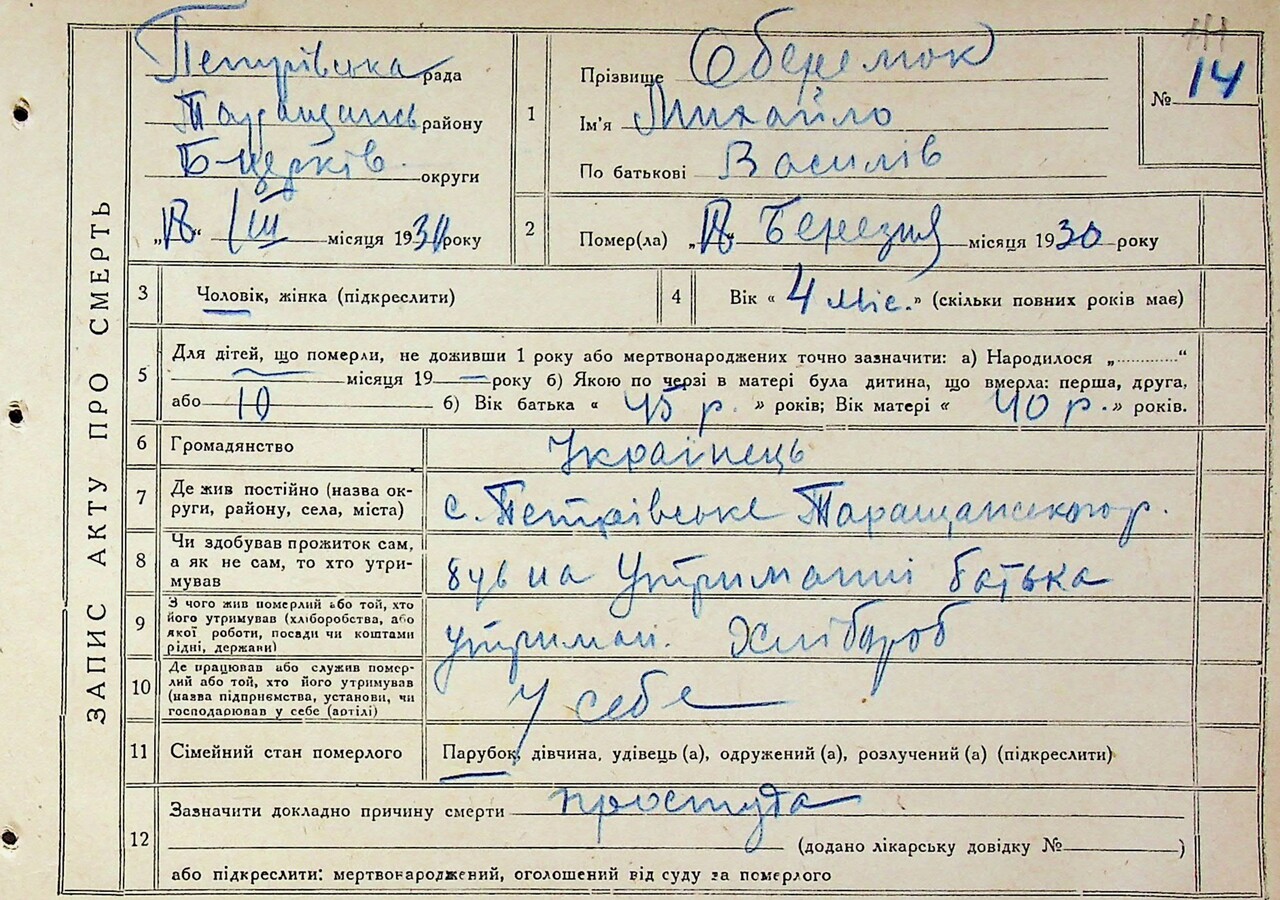 ЗАПИС АКТУ ПРО СМЕРТЬ
Петрівська рада
Таращансь району
Б-церків. округи
III місяця 1930 року
1 Прізвище Оберемок
Ім'я Михайло
По батькові Василів
№ 14
2 Помер(ла) Березня місяця 1930 року
3 Чоловік, жінка (підкреслити)
4 Вік « 4 міс. » (скільки повних років має)
5 Для дітей, що померли, не доживши 1 року або мертвонароджених точно зазначити: а) Народилося „............“
— місяця 19 — року б) Якою по черзі в матері була дитина, що вмерла: перша, друга,
або 10 б) Вік батька « 45 р. » років; Вік матері « 40 р. » років.
6 Громадянство Українець
7 Де жив постійно (назва ок-
руги, району, села, міста)
с. Петрівське Таращанськог р.
8 Чи здобував прожиток сам,
а як не сам, то хто утри-
мував
був на утриманні батька
9 З чого жив померлий або той, хто
його утримував (хліборобства, або
якої роботи, посади чи коштами
рідні, держави)
утриман. Хлібороб
10 Де працював або служив помер-
лий або той, хто його утримував
(назва підприємства, установи, чи
господарював у себе (артілі)
У себе
11 Сімейний стан померлого Парубок, дівчина, удівець (а), одружений (а), розлучений (а) (підкреслити)
12 Зазначити докладно причину смерти простуда
(додано лікарську довідку № )
або підкреслити: мертвонароджений, оголошений від суду за померлого